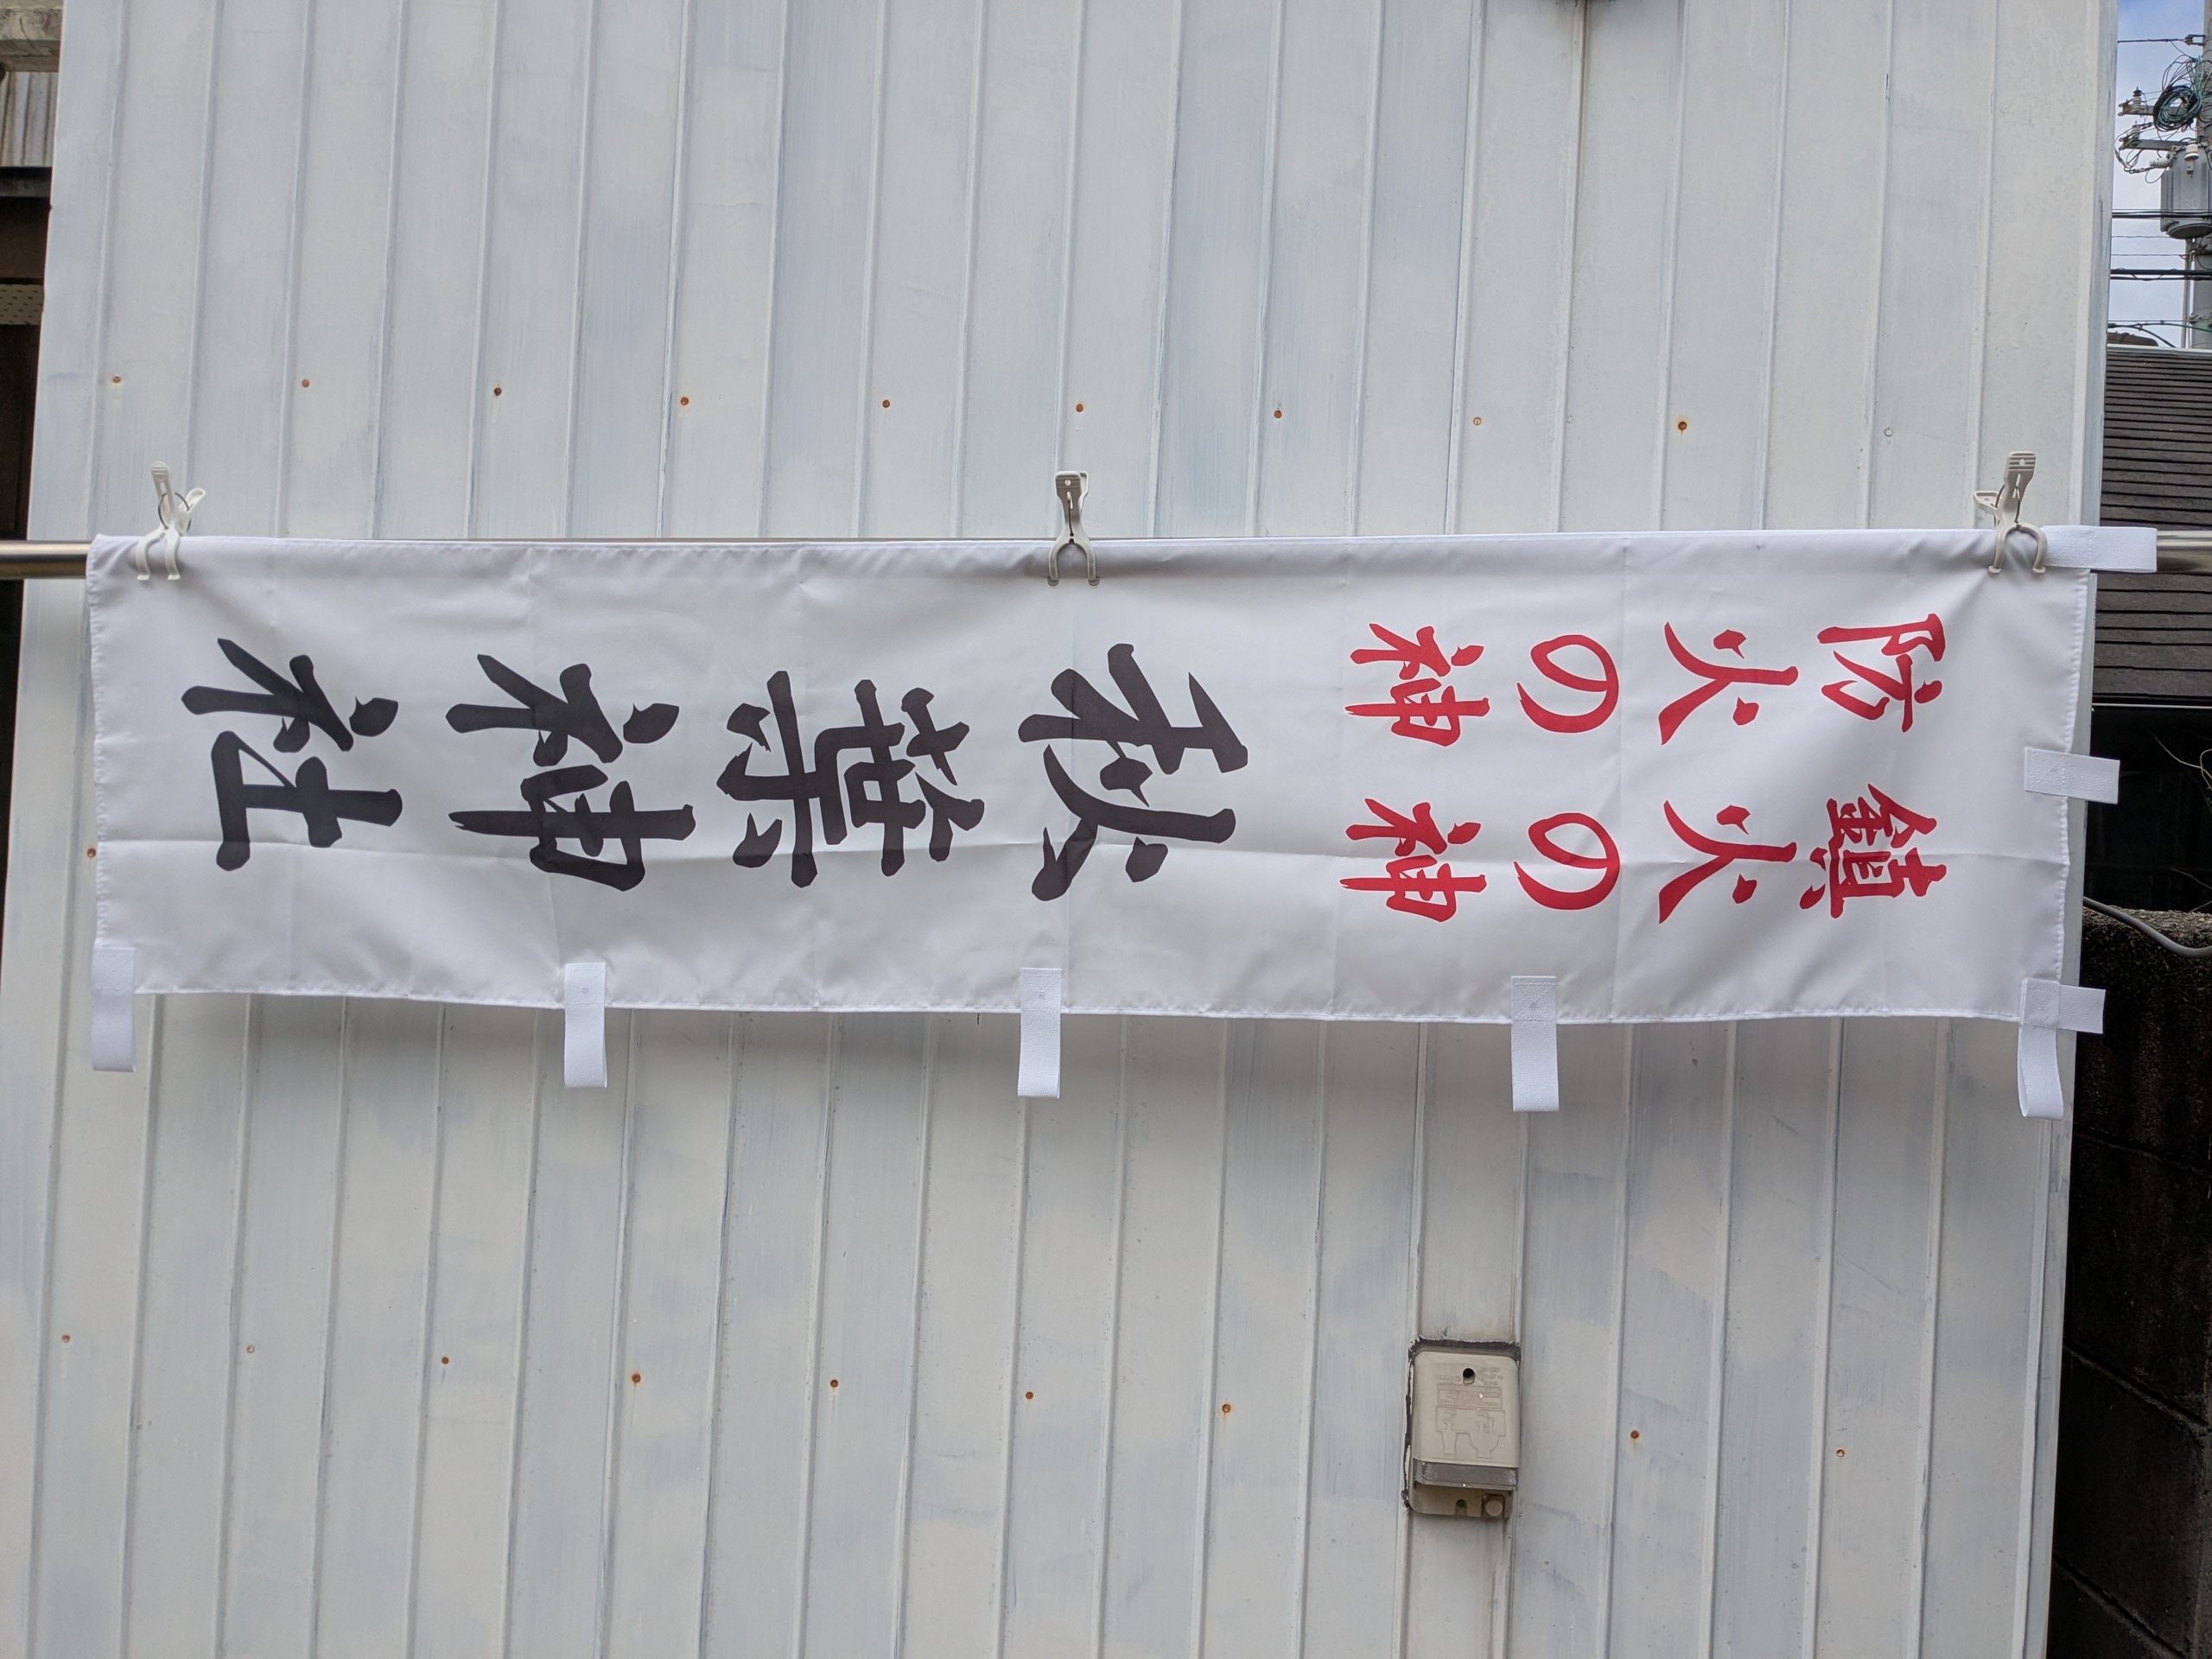 鎮火の神
防火の神
秋葉神社